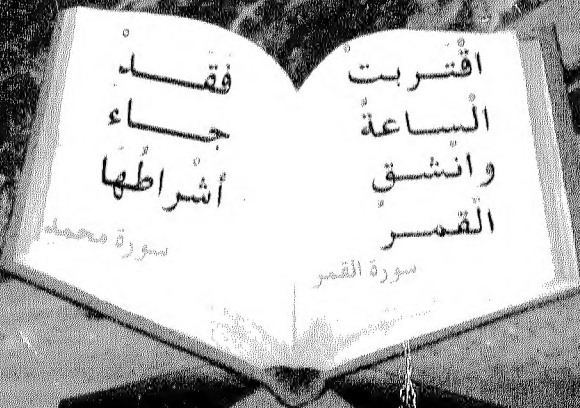 اقْتَــربتْ
الْســاعةُ
وانْشــقَ
الْقمــر
سورة القمر
فَقَــدْ
جــاء
أشْراطُهَا
سورة محمد